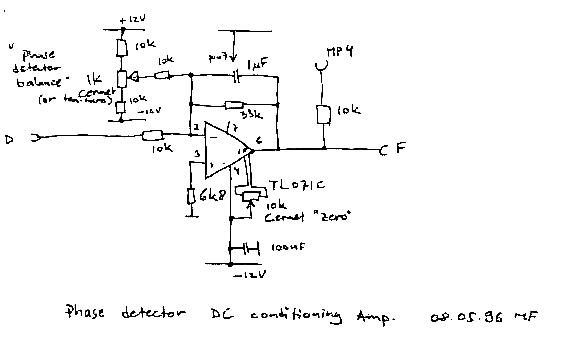 +12V
10k
"Phase
detector
balance"
1k
Cermet
(or ten-turn)
10k
-12V
10k
1µF
33k
MP4
10k
D
10k
2
7
3
6
4
F
6k8
TL071C
10k
Cermet "Zero"
100nF
-12V
Phase detector DC conditioning Amp. 08.05.96 MF